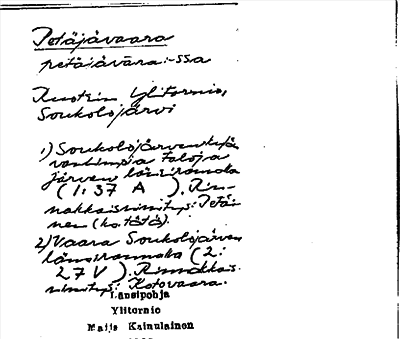 Petäjävaara
petäjävāra: -ssa
Ruotsin Ylitornio,
Soukolojärvi
1) Soukolojärven kylän
vanhimpia taloja
järven länsirannalla
(1: 37 A ). Rin-
nakkaisnimitys: Petäi-
nen (ks. tätä).
2) Vaara Soukolojärven
länsirannalla (2:
27 V ). Rinnakkais-
nimitys: Kotovaara.
Länsipohja
Ylitornio
Maija Kainulainen